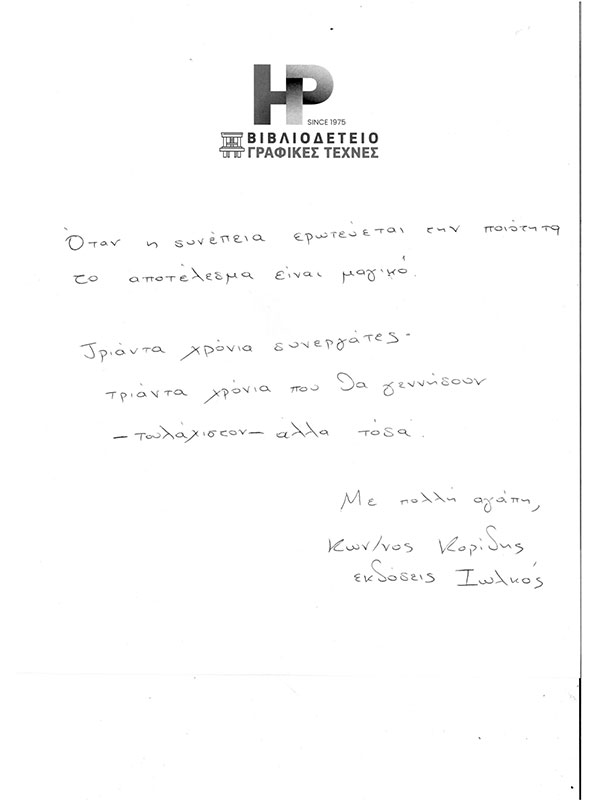 HP
SINCE 1975
ΒΙΒΛΙΟΔΕΤΕΙΟ
ΓΡΑΦΙΚΕΣ ΤΕΧΝΕΣ
Όταν η συνέπεια ερωτεύεται την ποιότητα
το αποτέλεσμα είναι μαγικό.
Τριάντα χρόνια συνεργάτες -
τριάντα χρόνια που θα γεννήσουν
- τουλάχιστον - άλλα τόσα.
Με πολλή αγάπη,
Κων/νος Κορίδης
εκδόσεις Ιωλκός